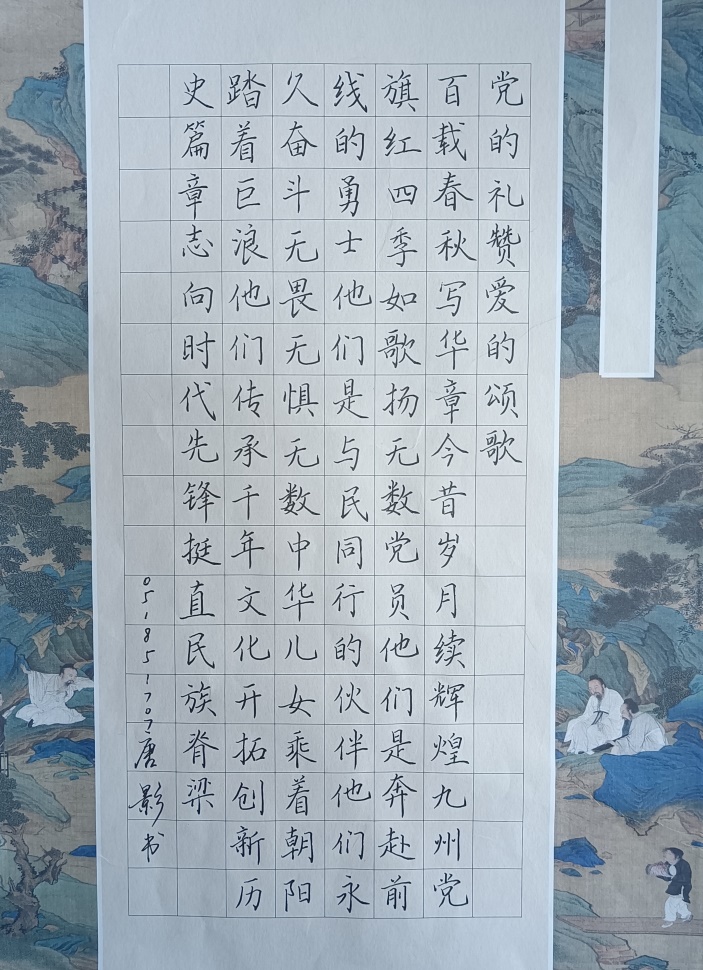 党的礼赞爱的颂歌
百载春秋写华章今昔岁月续辉煌九州党
旗红四季如歌扬无数党员他们是奔赴前
线的勇士他们是与民同行的伙伴他们永
久奋斗无畏无惧无数中华儿女乘着朝阳
踏着巨浪他们传承千年文化开拓创新历
史篇章志向时代先锋挺直民族脊梁
05-85-1707唐影书